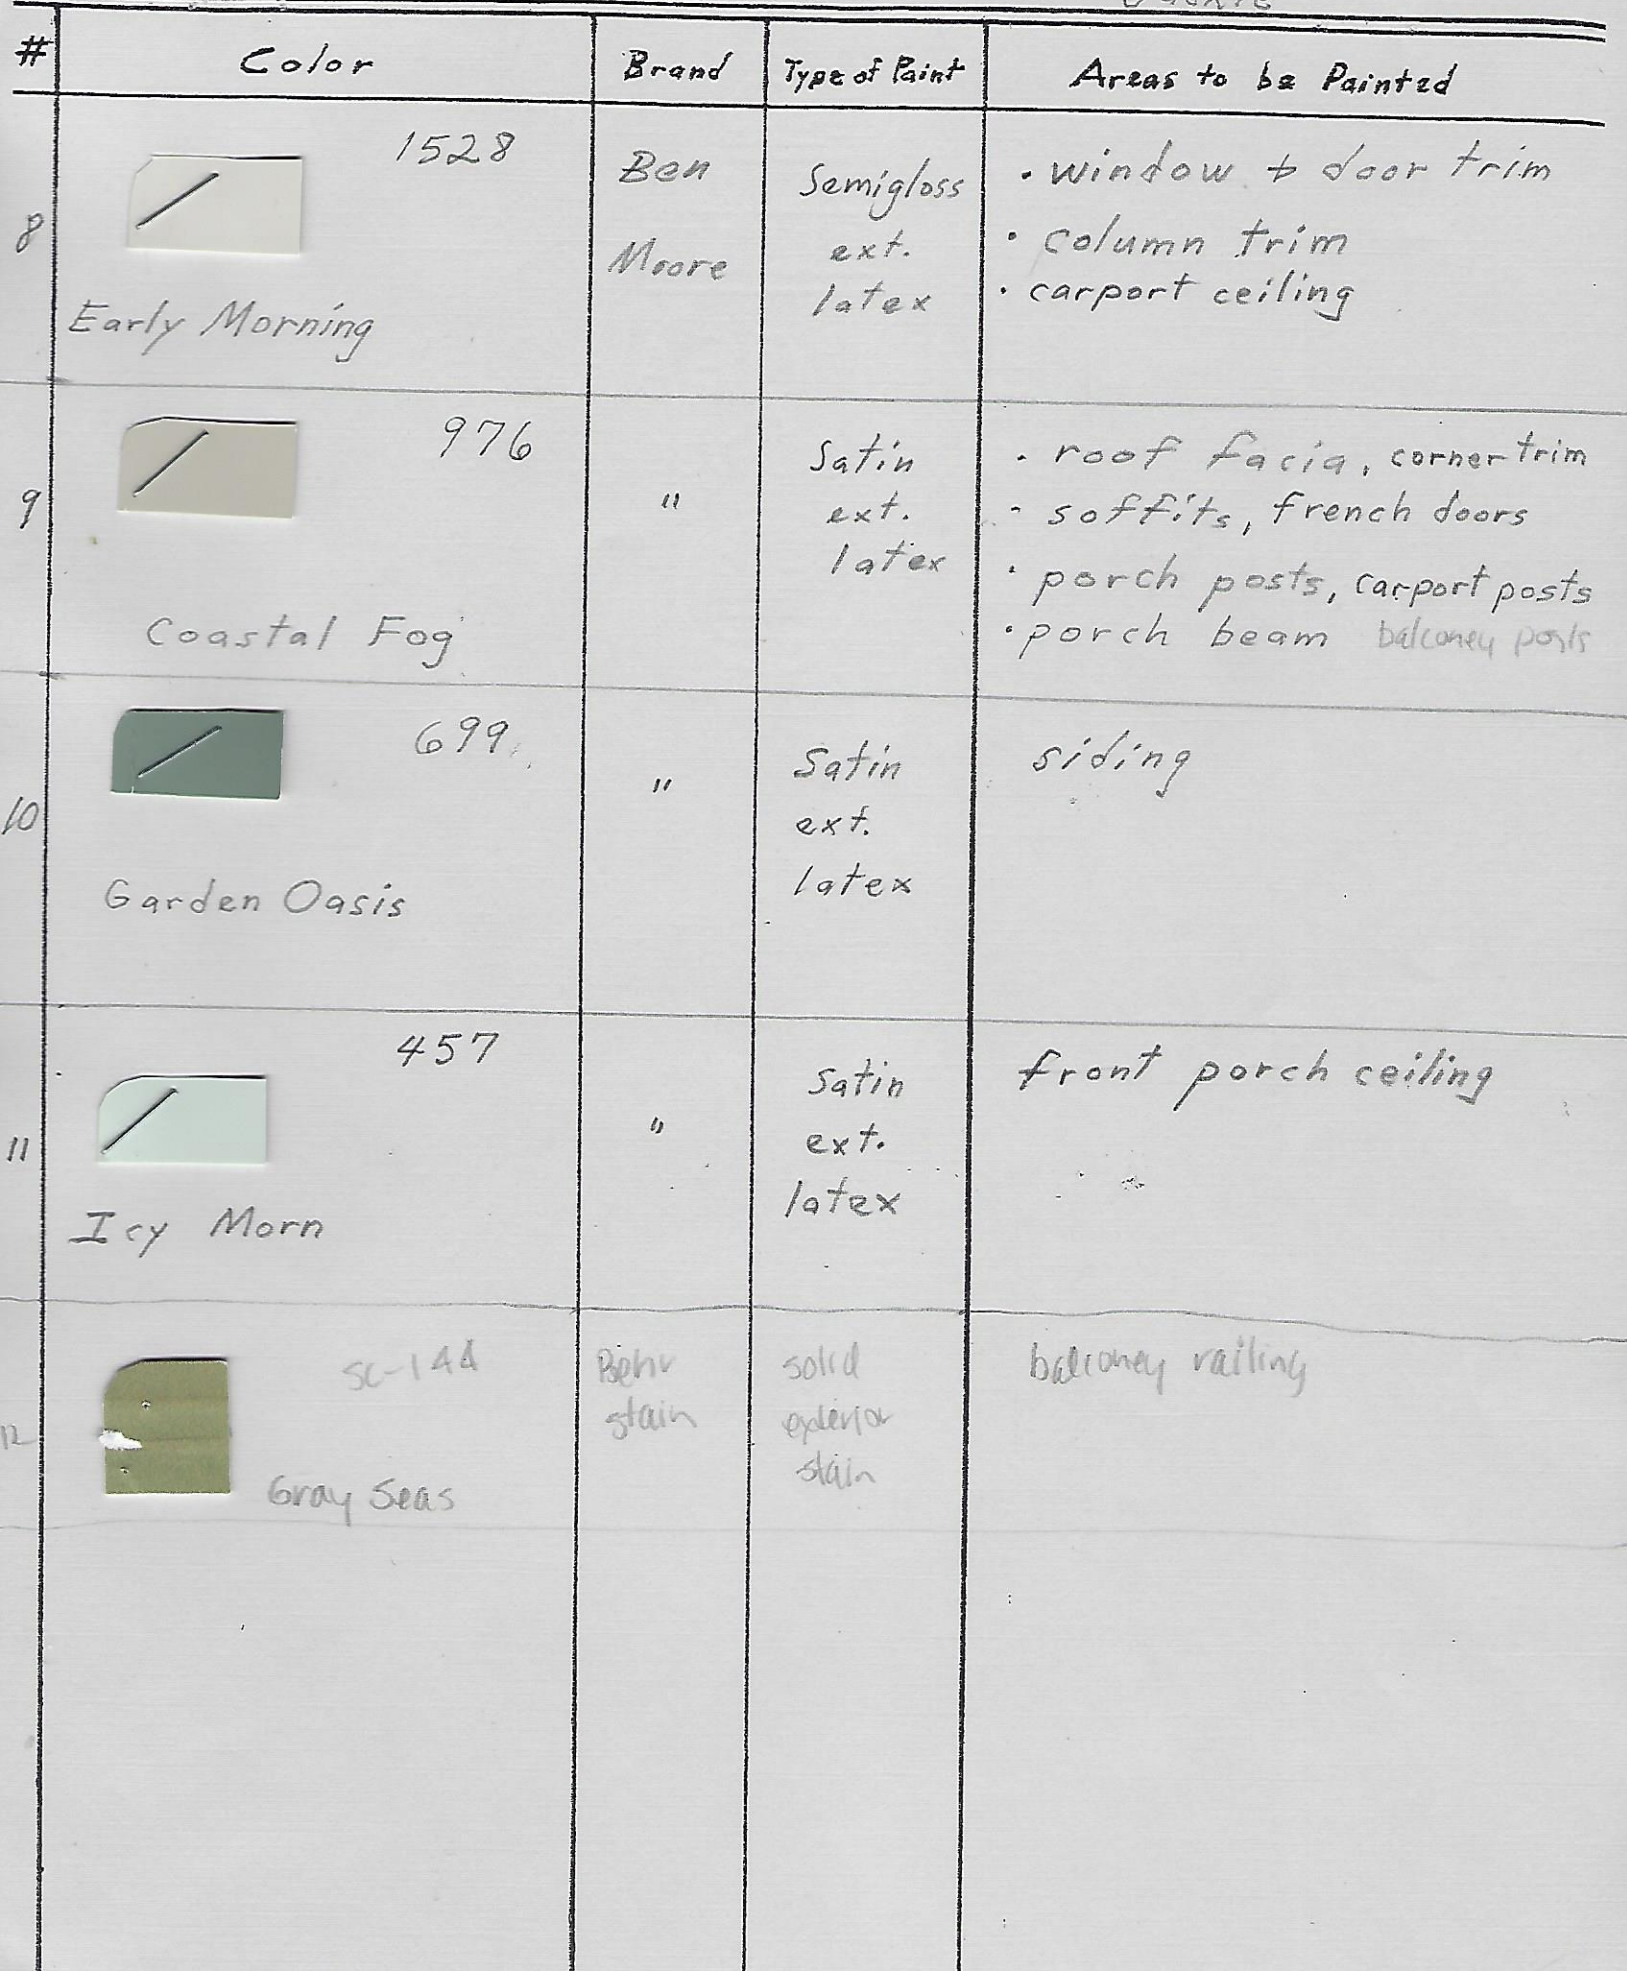 # Color Brand Type of Paint Areas to be Painted
8
1528
Early Morning
Ben
Moore
Semigloss
ext.
latex
• window & door trim
• column trim
• carport ceiling
9
976
Coastal Fog
"
Satin
ext.
latex
• roof facia, corner trim
- soffits, french doors
• porch posts, carport posts
• porch beam balconey posts
10
699
Garden Oasis
"
Satin
ext.
latex
siding
11
457
Icy Morn
"
Satin
ext.
latex
front porch ceiling
12
SC-144
Gray Seas
Behr
stain
solid
exterior
stain
balconey railing